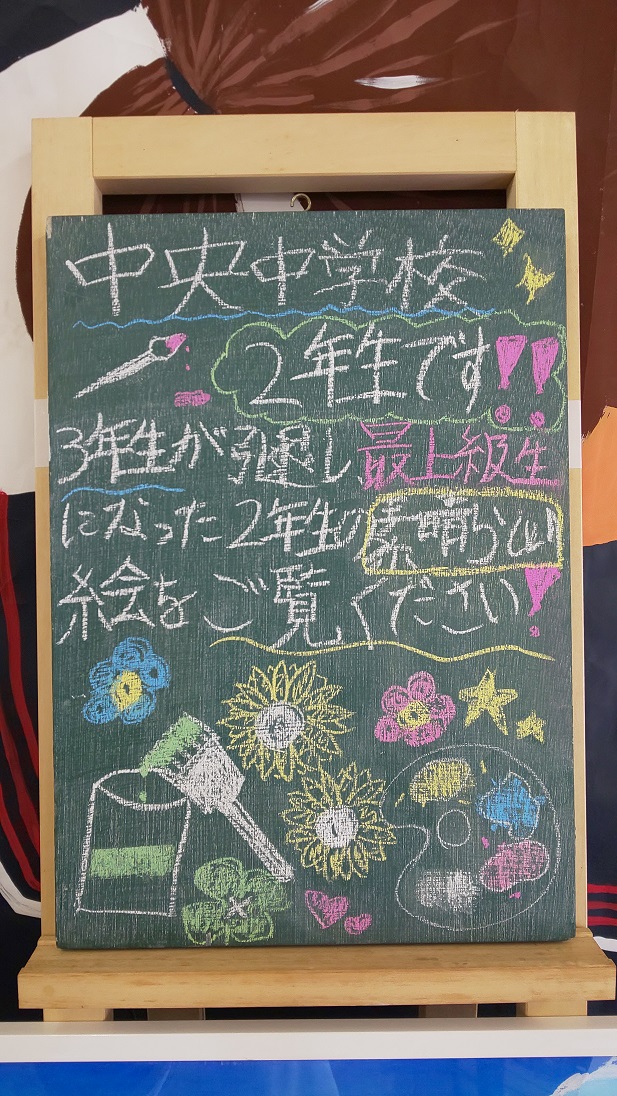 中央中学校
2年生です!!
3年生が引退し、最上級生
になった2年生の素晴らしい
絵をご覧ください!